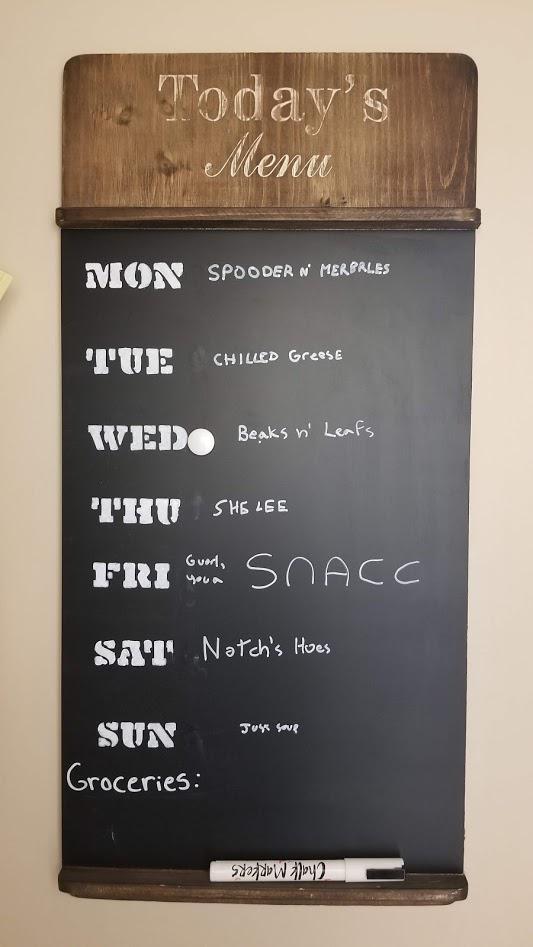 Today's
Menu
MON SPOODER N' MERBRLES
TUE CHILLED GreeSE
WED Beaks n' Leafs
THU SHE LEE
FRI Guorl, you a SNACC
SAT Notch's Hoes
SUN Just soup
Groceries:
Chalk Markers